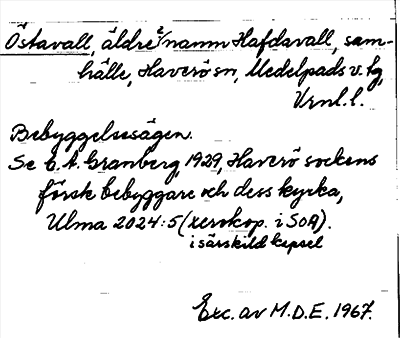 Östavall, äldre namn Hafdavall, sam-
hälle, Haverö sn, Medelpads v. tg,
Vrnl. l.
Bebyggelsesägen.
Se E. A. Granberg, 1929, Haverö sockens
försk bebyggare och dess kyrka,
Ulma 2024:5 (xerokop. i SOA).
i särskild kapsel
Exc. av M.D.E. 1967.